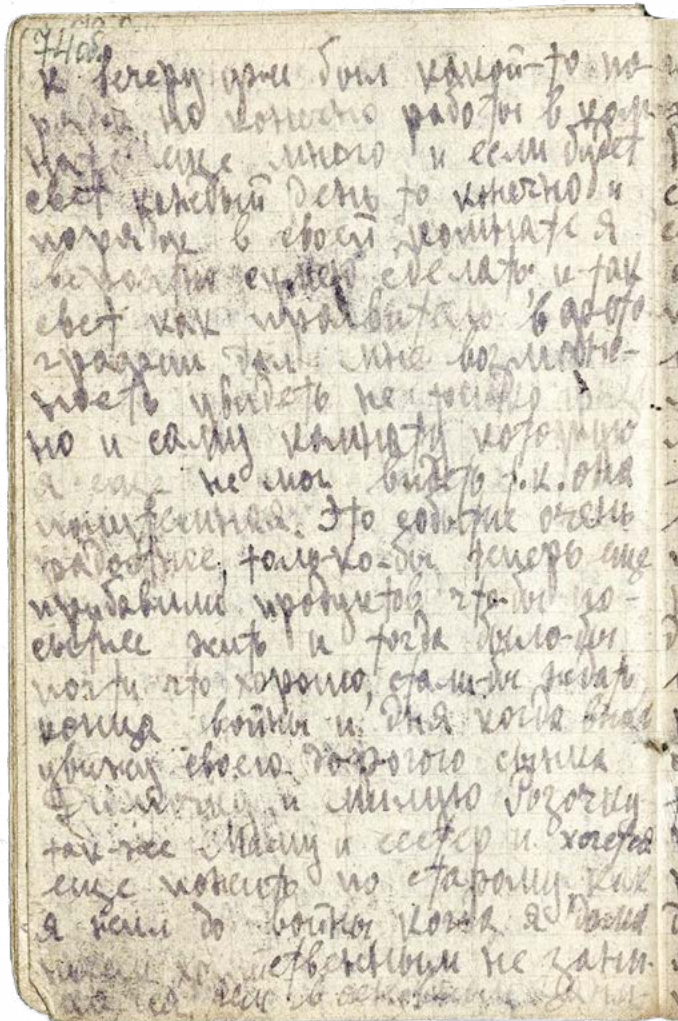 74об.
к вечеру уже был какой-то по-
рядок, но конечно работы в ком-
нате еще много и если будет
свет каждый день то конечно и
порядок в своей комнате я
вероятно сумею сделать, и так
свет как
дал мне возмож-
ность увидеть не только
но и саму комнату которую
я еще не мог видеть т.к. она
полутемная. Это событие очень
радостное, только-бы теперь еще
прибавили продуктов что-бы по-
сытнее жить и тогда было-бы
почти что хорошо, стали-бы ждать
конца войны и дня когда
увижу своего дорогого сынка
и милую Розочку
так-же Маму и сестер и хочется
еще пожить по старому как
я жил до войны когда я дома
ничем хозяйственным не зани-